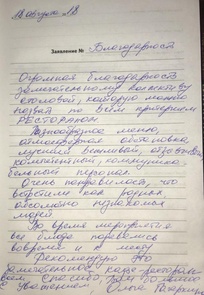 18 августа 18.
Заявление № Благодарность
Огромная благодарность
замечательному коллективу
столовой, которую можно
назвать по всем критериям
РЕСТОРАНОМ.
Разнообразное меню,
атмосферная обстановка,
лучший вежливый,
компетентный, коммуника-
бельный персонал.
Очень понравилось, что
встретили как родных
абсолютно незнакомых
людей.
Во время мероприятия
все блюда подавались
вовремя и к месту
Рекомендую это
замечательное кафе-ресторан
Спасибо
С уважением Ольга